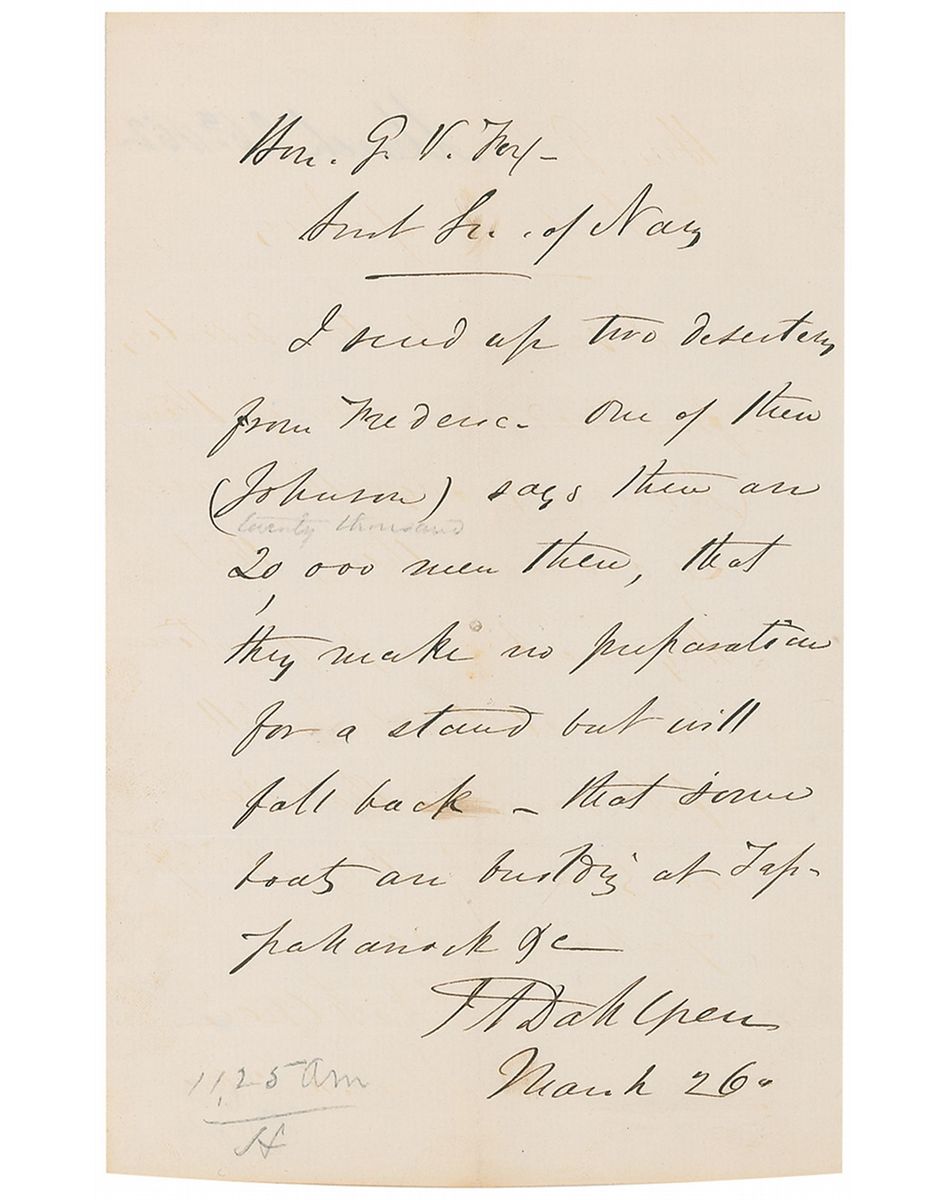 Hon. G. V. Fox -
Asst Sec. of Navy
I send up two deserters
from Frederic. One of them
(Johnson) says there are
twenty thousand
20,000 men there, that
they make no preparation
for a stand but will
fall back - that some
boats are building at Tap-
pahanock &c
J A Dahlgren
March 26.
11,25 am
H